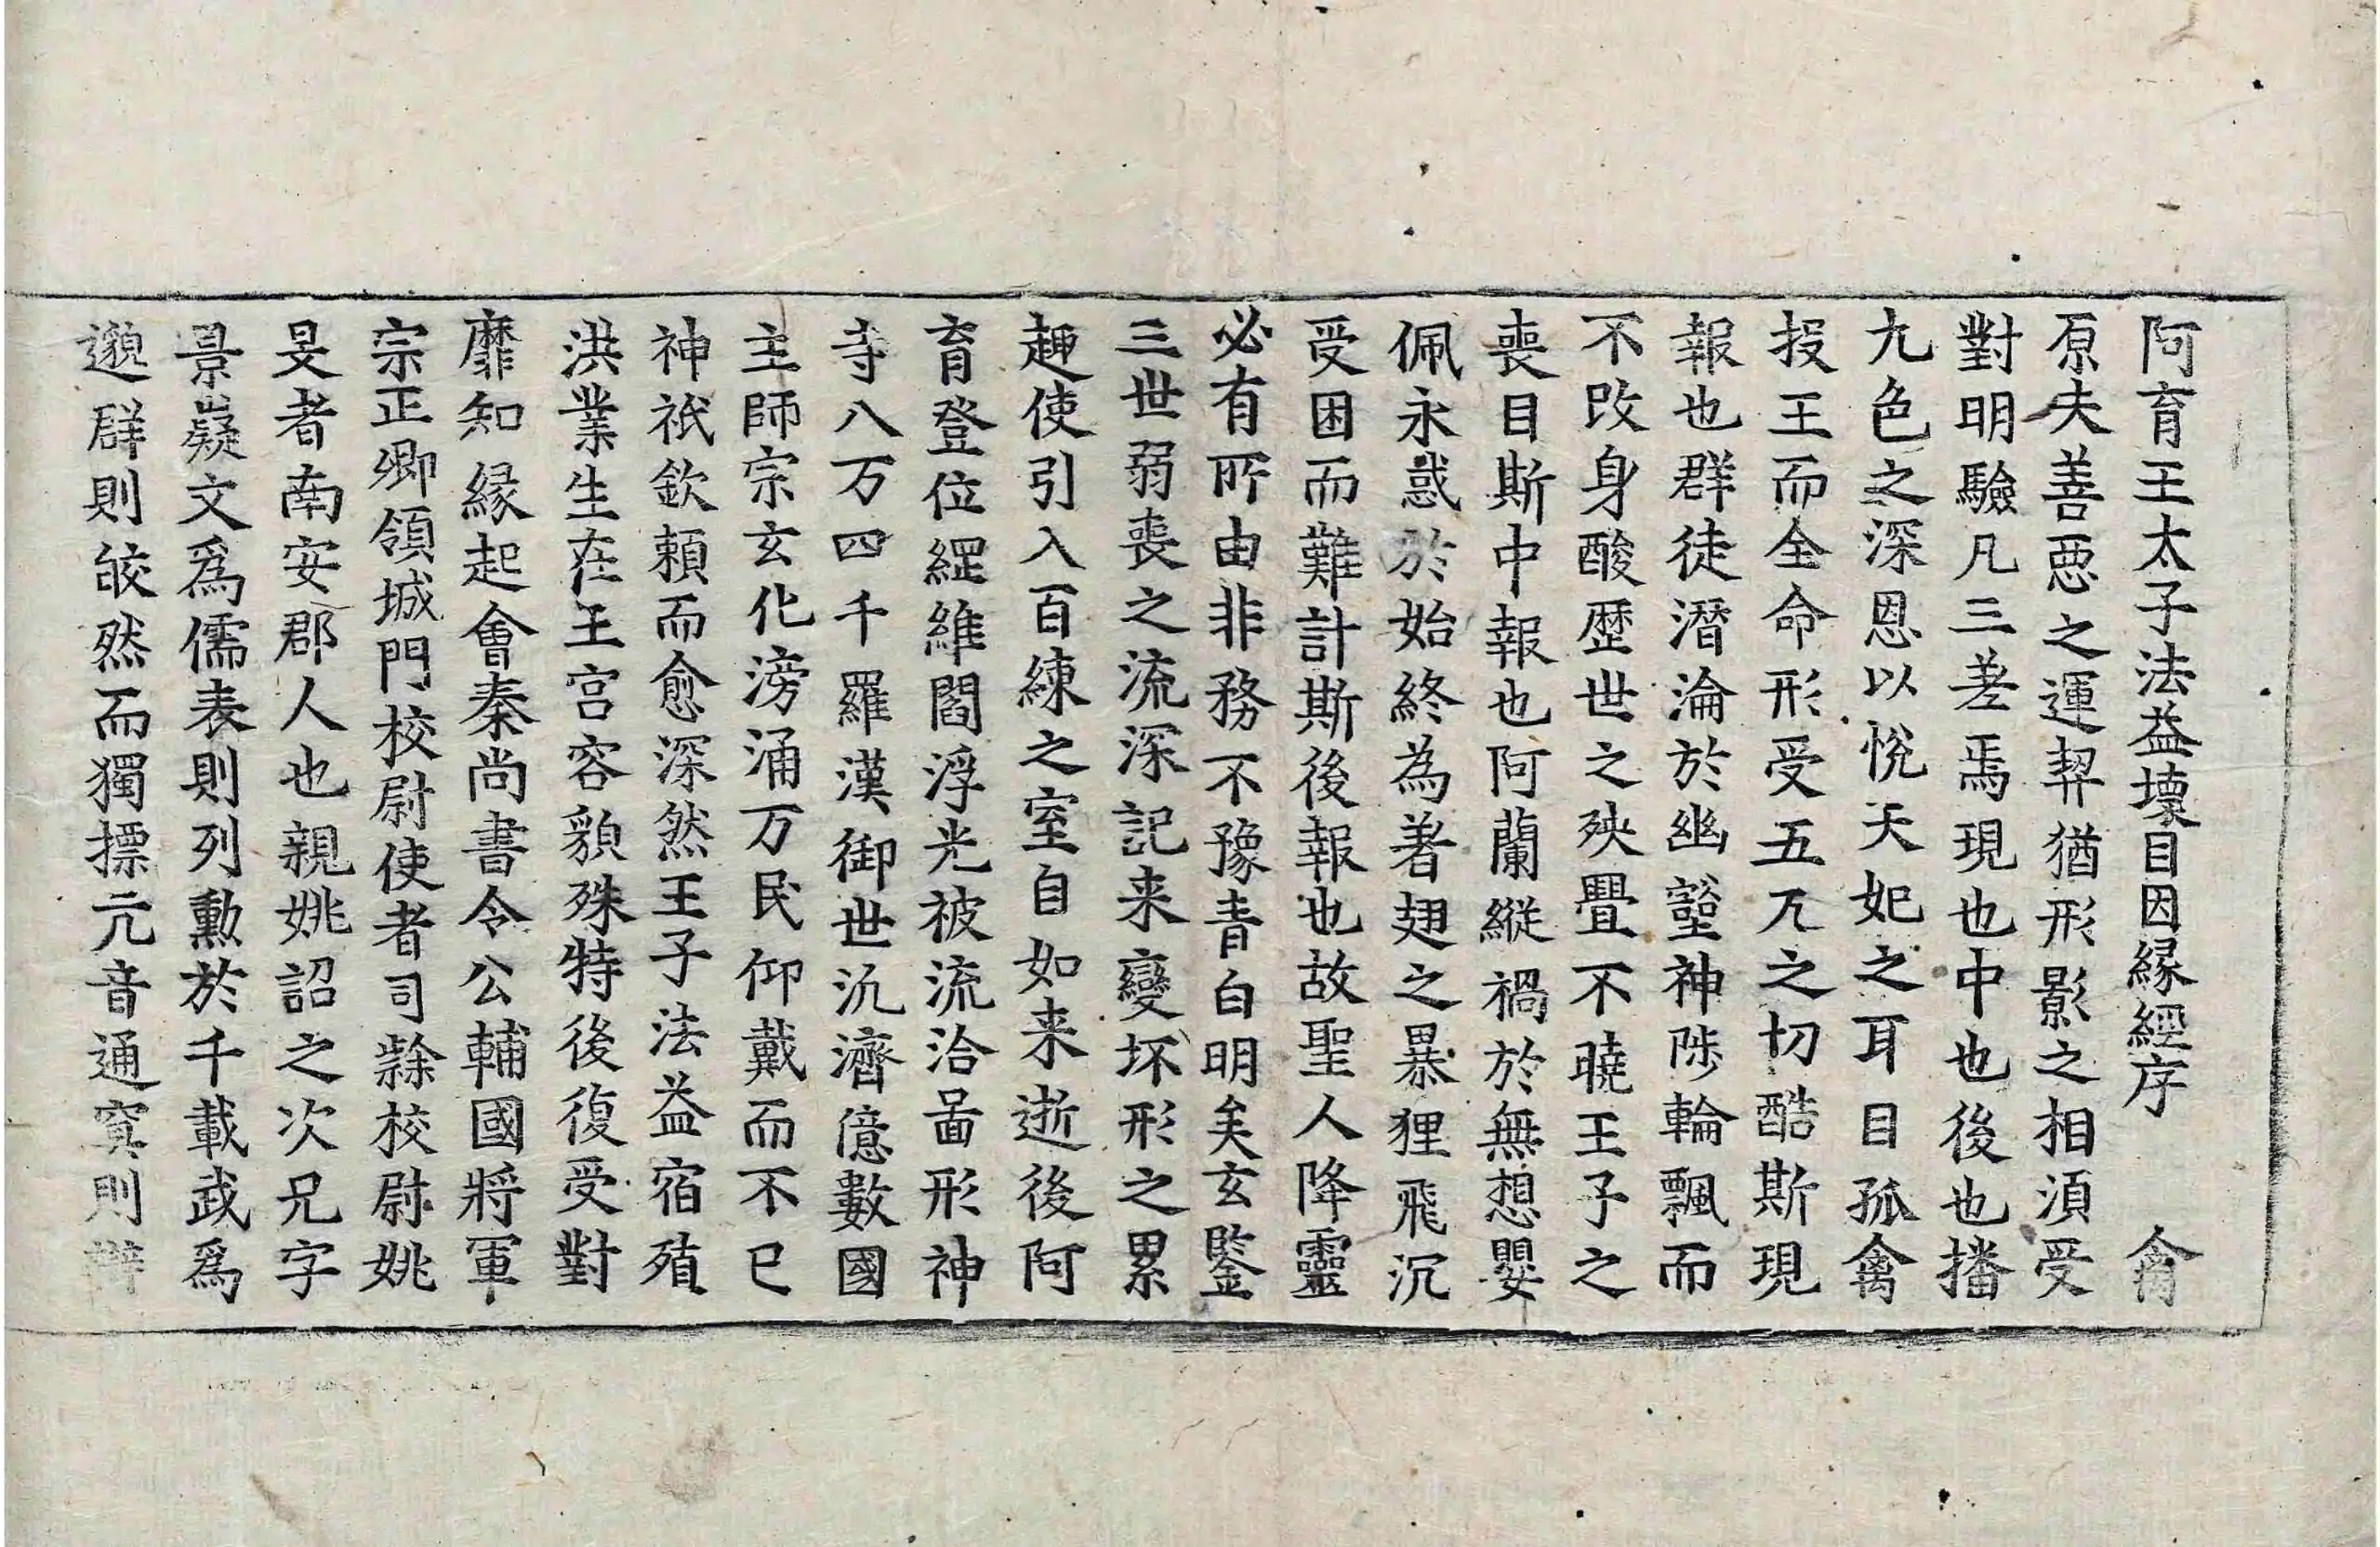 阿育王太子法益壞目因縁經序 禽
原夫善悪之運契猶形影之相湏受
對明驗凡三差焉現也中也後也播
九色之深恩以悅天妃之耳目孤禽
投王而全命形受五兀之切酷斯現
報也群徒潛淪於幽壑神陟輪飄而
不改身酸歴世之殃疊不曉王子之
喪目斯中報也阿蘭縱禍於無想嬰
佩永惑於始終為著翅之暴狸飛沉
受困而難計斯後報也故聖人降靈
必有所由非務不豫青白明矣玄鑒
三世弱喪之流深記来變坏形之累
趣使引入百練之室自如来逝後阿
育登位綑維閻浮光被流洽啚形神
寺八万四千羅漢御世汎濟億數國
主師宗玄化滂涌万民仰戴而不已
神祇欽頼而愈深然王子法益宿殖
洪業生在王宫容貌殊特後復受對
靡知縁起會秦尚書令公輔國將軍
宗正卿領城門校尉使者司隸校尉姚
旻者南安郡人也親姚詔之次兄字
景嶷文爲儒表則列勳於千載武爲
邈群則皎然而獨摽亢音通寘則辯